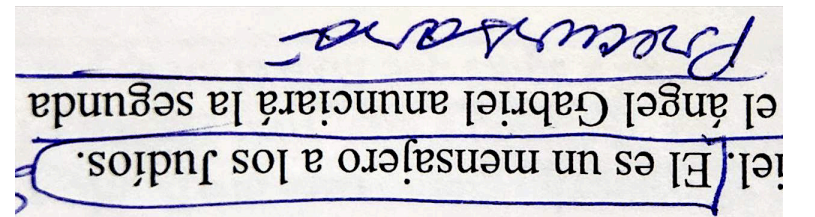 iel. Él es un mensajero a los Judíos.
el ángel Gabriel anunciará la segunda